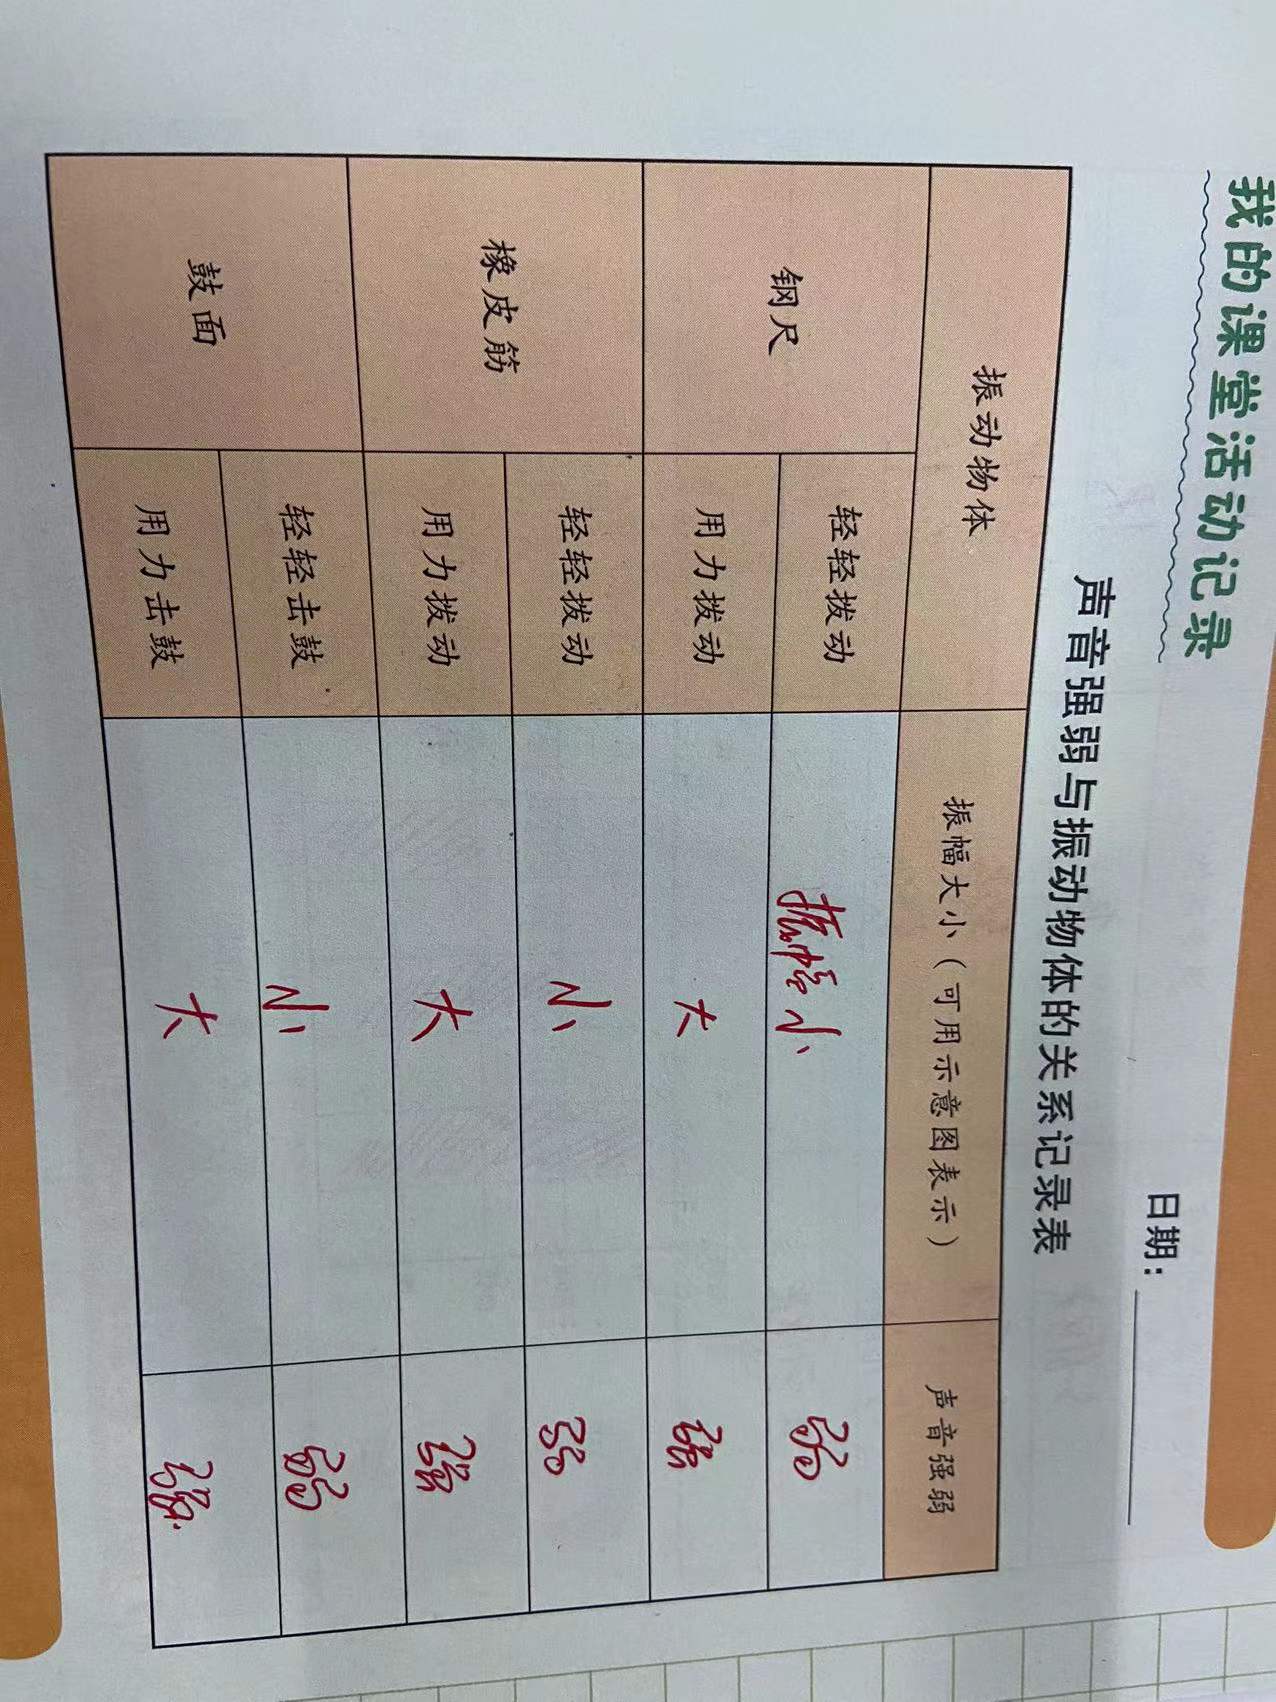 我的课堂活动记录
日期：
声音强弱与振动物体的关系记录表
振动物体 振幅大小（可用示意图表示） 声音强弱
钢尺 轻轻拨动 振幅小 弱
用力拨动 大 强
橡皮筋 轻轻拨动 小 弱
用力拨动 大 强
鼓面 轻轻击鼓 小 弱
用力击鼓 大 强